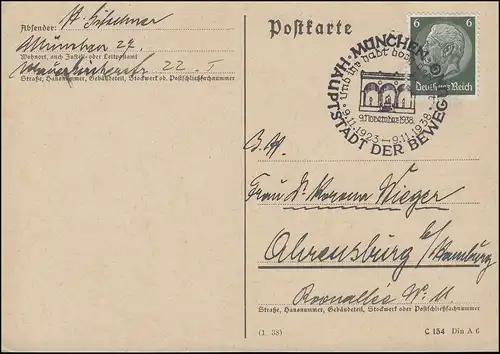 Absender:
München 27.
Wohnort, auch Zustell- oder Leitpostamt
22. I
Straße, Hausnummer, Gebäudeteil, Stockwerk od. Postschließfachnummer
Postkarte
6 6
Deutsches Reich
MÜNCHEN
HAUPTSTADT DER BEWEGUNG
und ihr habt doch
9. November 1938.
9.11.1923 - 9.11.1938
Frau Dr. Wieger
Ahrensburg b/Hamburg
Straße, Hausnummer, Gebäudeteil, Stockwerk oder Postschließfachnummer
(1. 38)
C 154 Din A 6